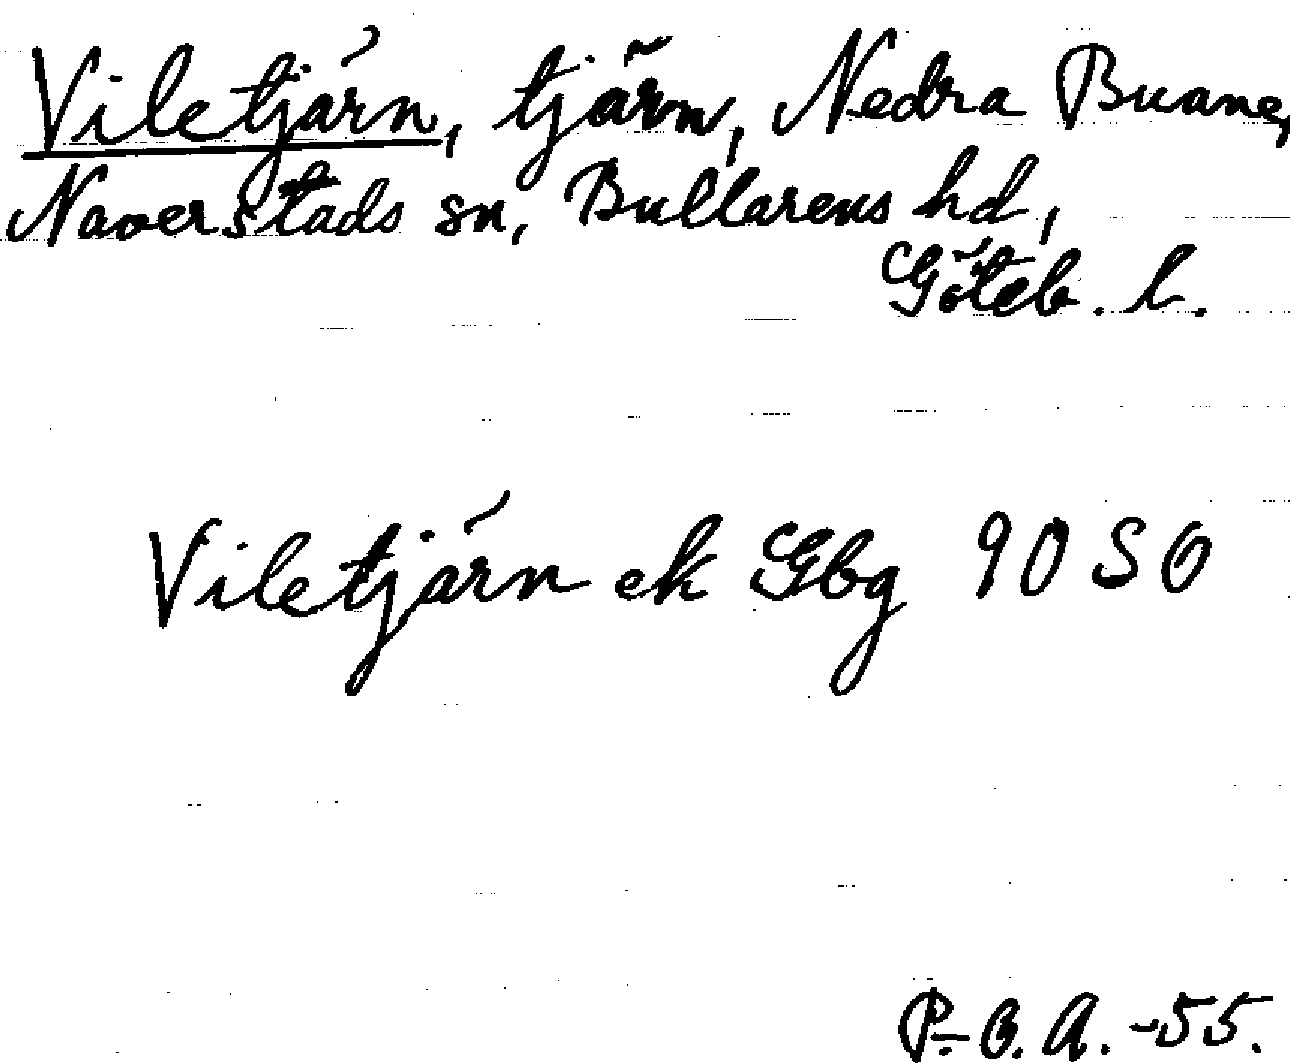 Viletjärn, tjärn, Nedra Buane,
Naverstads sn, Bullarens hd,
Göteb. l.
Viletjärn ek Gbg 90 SO
P.-O. A. -55.